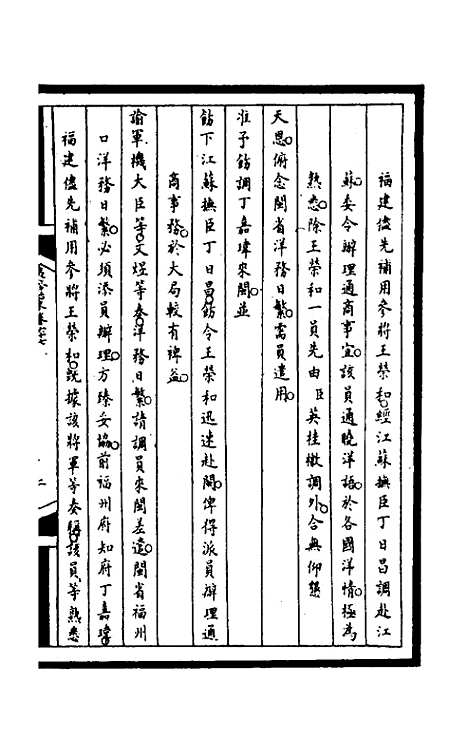 福建儘先補用參將王榮和經江蘇撫臣丁日昌調赴江
蘇委令辦理通商事宜該員通曉洋語於各國洋情極為
熟悉除王榮和一員先由臣英桂檄調外合無仰懇
天恩俯念閩省洋務日繁需員遣用
准予飭調丁嘉瑋來閩並
飭下江蘇撫臣丁日昌飭令王榮和迅速赴閩俾得派員辦理通
商事務於大局較有裨益
諭軍機大臣等文煜等奏洋務日繁請調員來閩差遣閩省福州
口洋務日繁必須添員辦理方臻妥協前福州府知府丁嘉瑋
福建儘先補用參將王榮和既據該將軍等奏稱該員等熟悉